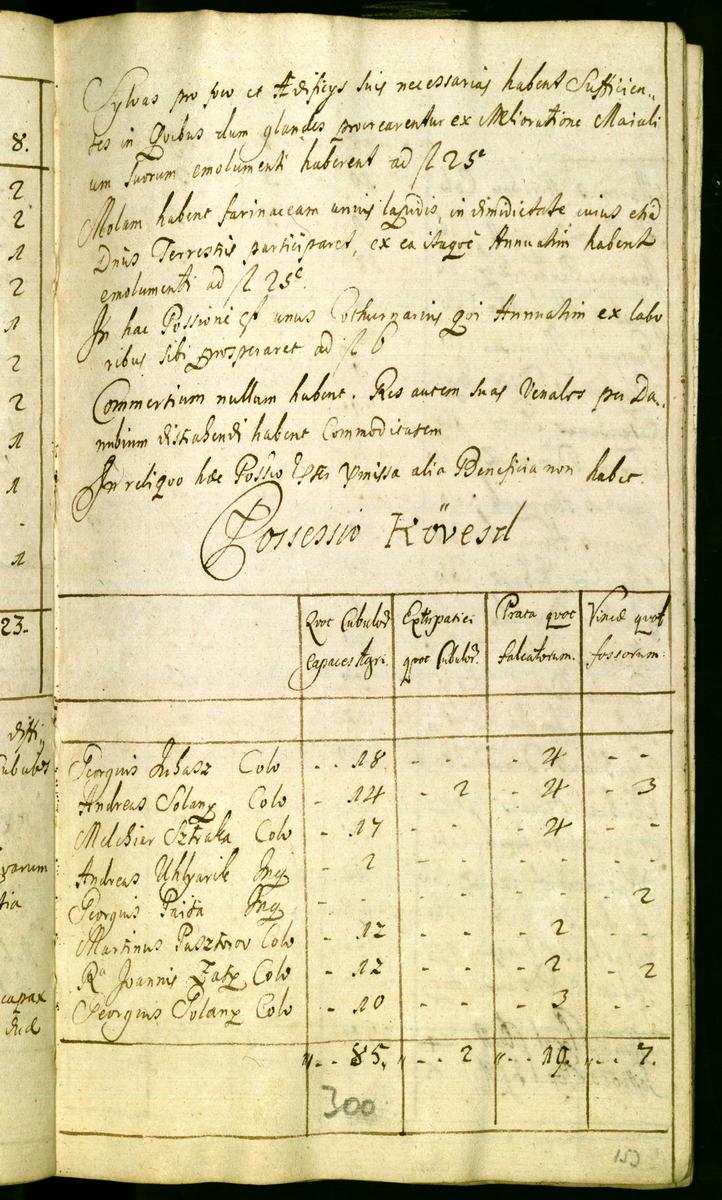 Sylvas pro foco et Ædificys suis necessarias habent Sufficien„
tes in quibus dum glandes procrearentur ex Melioratione Maiali
um suorum emolumenti haberent ad fl 25
Molam habent farinaceam unius lapidis, in dimidietate cuius etiā
Dnus Terrestris participaret, ex ea itaque Annuatim habent
emolumenti ad fl 25
In hac Possione est unus Cothurnarius qui Annuatim ex labo
ribus sibi prosperaret ad fl 6
Commertium nullum habent. Res autem suas Venales per Da„
nubium distrahendi habent Commoditatem
In reliquo hæc Possio præmissa alia Beneficia non habet.
Possessio Kövesd
Quot Cubulor Extirpatici Prata quot Vineæ quot
Capaces Agri. quot Cubulor. falcatorum. fossorum.
Georgius Juhasz Colo - - 18 - - - 4 - -
Andreas Polany Colo - 14 - 2 - 4 - 3
Melchior Sztraka Colo - 17 - - - 4 - -
Andreas Uhlyarik Inq - 2 - - - - - -
Georgius Paida Inq - - - - - - - 2
Martinus Pasztorov Colo - 12 - - - 2 - -
Ra Joannis Zaty Colo - 12 - - - 2 - 2
Georgius Polany Colo - 10 - - - 3 - -
„ - - 85. „ - - 2 „ - - 19. „ - - 7.
300
153
8.
2
2
1
2
1
2
2
1
1
-
1
23.